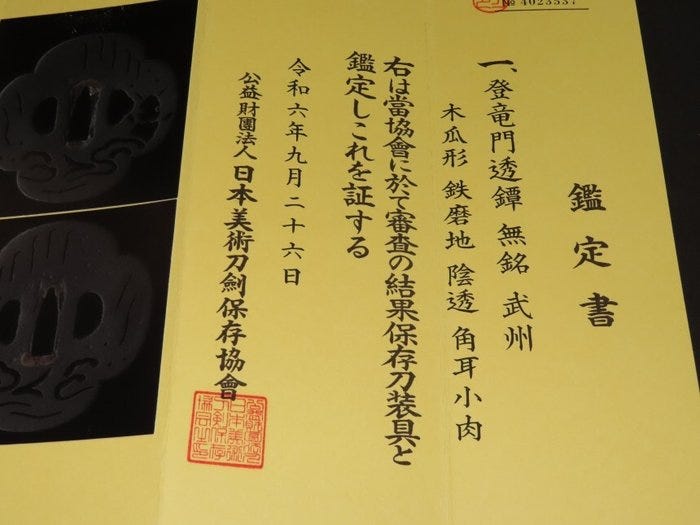 № 4023537
鑑定書
一、登竜門透鐔 無銘 武州
木瓜形 鉄磨地 陰透 角耳小肉
右は當協會に於て審査の結果保存刀装具と
鑑定しこれを証する
令和六年九月二十六日
公益財團法人 日本美術刀劍保存協會